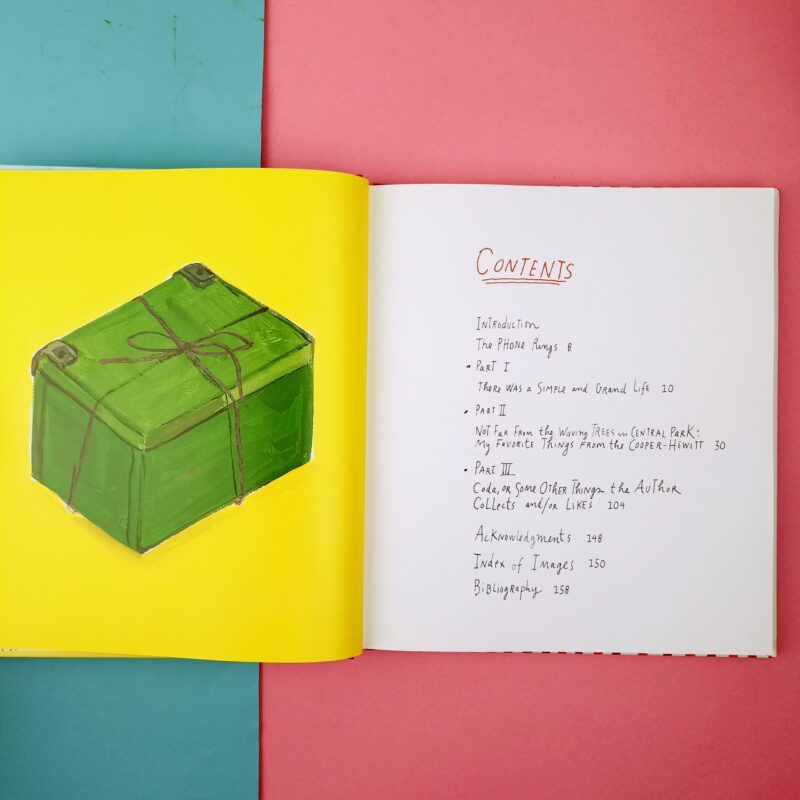 CONTENTS
INTRODUCTION
The PHONE Rings 8
• PART I
THERE WAS A SIMPLE and GRAND LIFE 10
• PART II
NOT FAR FROM the WAVING TREES in CENTRAL PARK:
MY FAVORITE THINGS FROM the COOPER-HEWITT 30
• PART III
CODA, OR SOME OTHER THINGS the AUTHOR
COLLECTS and/or LIKES 104
ACKNOWLEDGMENTS 148
INDEX of IMAGES 150
BIBLIOGRAPHY 158